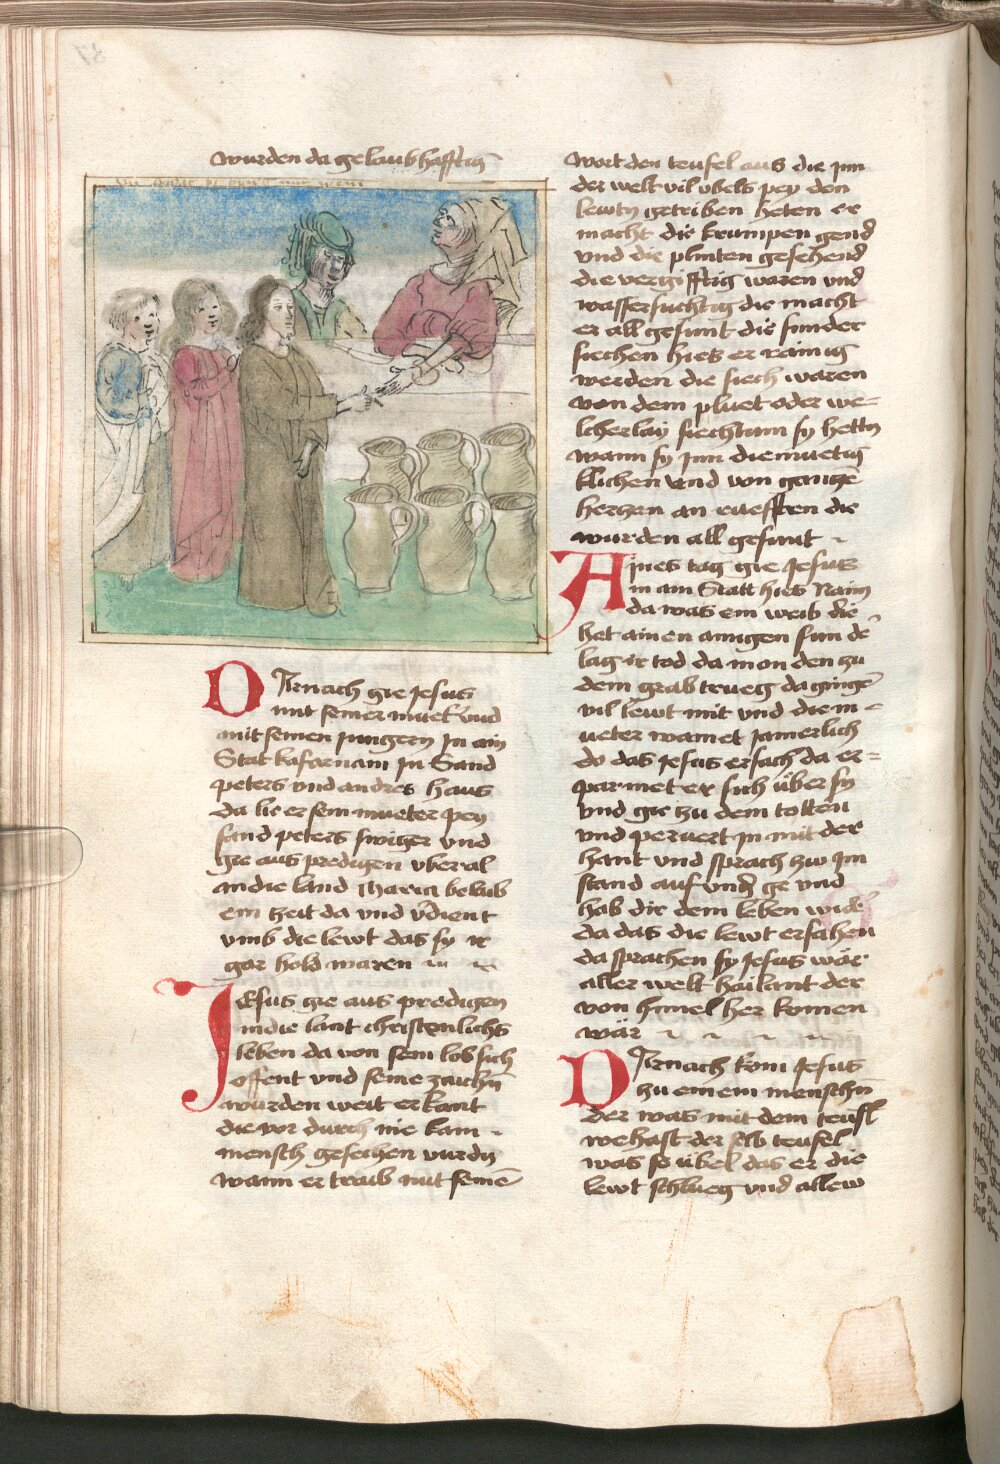 wurden da gelaubhafftig
Darnach gie Jesus
mit seiner mueter vnd
mit seinen Jungern Jn ain
Stat kafarnaum Jn Sand
peters vnd andres haus
da lie er sein mueter pey
sand peters swiger vnd
gie aus predigen vberal
in die land Maria belaib
ein zeit da vnd vdient
vmb die lewt das sy ir
gar hold waren
Jesus gie aus predigen
in die lant christenlichs
leben da von sein lob sich
offent vnd seine zaichn
wurden weit erkant
die vor durch nie kain
mensch gesechen wurdn
wann er traib mit seinē
wort den teufel aus die Jnn
der welt vil vbels pey den
lewtn getriben heten er
macht die krumpen gend
vnd die plinten gesehend
die vergifftig waren vnd
wassersuchtig die macht
er all gesunt die sunder
siechen hies er rainig
werden die siech waren
von dem pluet oder we=
lcherlay siechtum sy hettn
wann sy Jnn diemuetig
klichen vnd von gantzē
hertzen an rueften die
wurden all gesunt
Aines tag gie Jesus
in ain Statt hies Naim
da was ein weib die
het ainen ainigen sun dē
lag ir tod da mon den zu
dem grab trueg da gingē
vil lewt mit vnd die m=
ueter wainet Jamerlich
do das Jesus ersach da er=
parmet er sich über sy
vnd gie zu dem totten
vnd peruert Jn mit der
hant vnd sprach zw Jm
stand auf vnd ge vnd
hab dir dein leben wider
da das die lewt ersahen
da sprachen sy Jesus wär
aller welt hailant der
von himel her komen
wär
Darnach kom Jesus
zu einem menschn
der was mit dem teufl
wehaft der selb teufel
was so übel das er die
lewt schlueg vnd allew